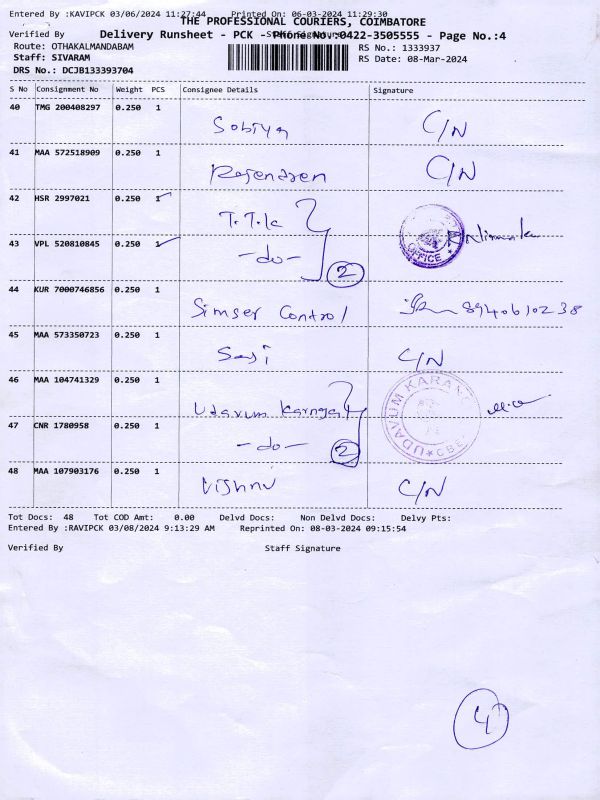 Entered By :KAVIPCK 03/06/2024 11:27:44 Printed On: 06-03-2024 11:29:30
THE PROFESSIONAL COURIERS, COIMBATORE
Verified By Staff Signature
Delivery Runsheet - PCK - Phone No.:0422-3505555 - Page No.:4
Route: OTHAKALMANDABAM RS No.: 1333937
Staff: SIVARAM RS Date: 08-Mar-2024
DRS No.: DCJB133393704
S No Consignment No Weight PCS Consignee Details Signature
40 TMG 200408297 0.250 1 Sobiya C/N
41 MAA 572518909 0.250 1 Rajendren C/N
42 HSR 2997021 0.250 1 T.T.K
OFFICE
43 VPL 520810845 0.250 1 -do- 2
44 KUR 7000746856 0.250 1 Simser Control 8940610238
45 MAA 573350723 0.250 1 Sasi C/N
46 MAA 104741329 0.250 1 Udavum Karngal
UDAVUM KARANG CBE
47 CNR 1780958 0.250 1 -do- 2
48 MAA 107903176 0.250 1 Vishnu C/N
Tot Docs: 48 Tot COD Amt: 0.00 Delvd Docs: Non Delvd Docs: Delvy Pts:
Entered By :RAVIPCK 03/08/2024 9:13:29 AM Reprinted On: 08-03-2024 09:15:54
Verified By Staff Signature
4